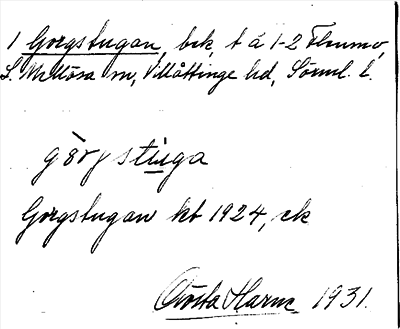 1 Gorgstugan, bck, t å 1-2 Flemmo,
L. Mellösa sn, Villåttinge hd, Sörml. l.
görgstuga
Gorgstugan kb 1924, ek
Gösta Harne 1931.